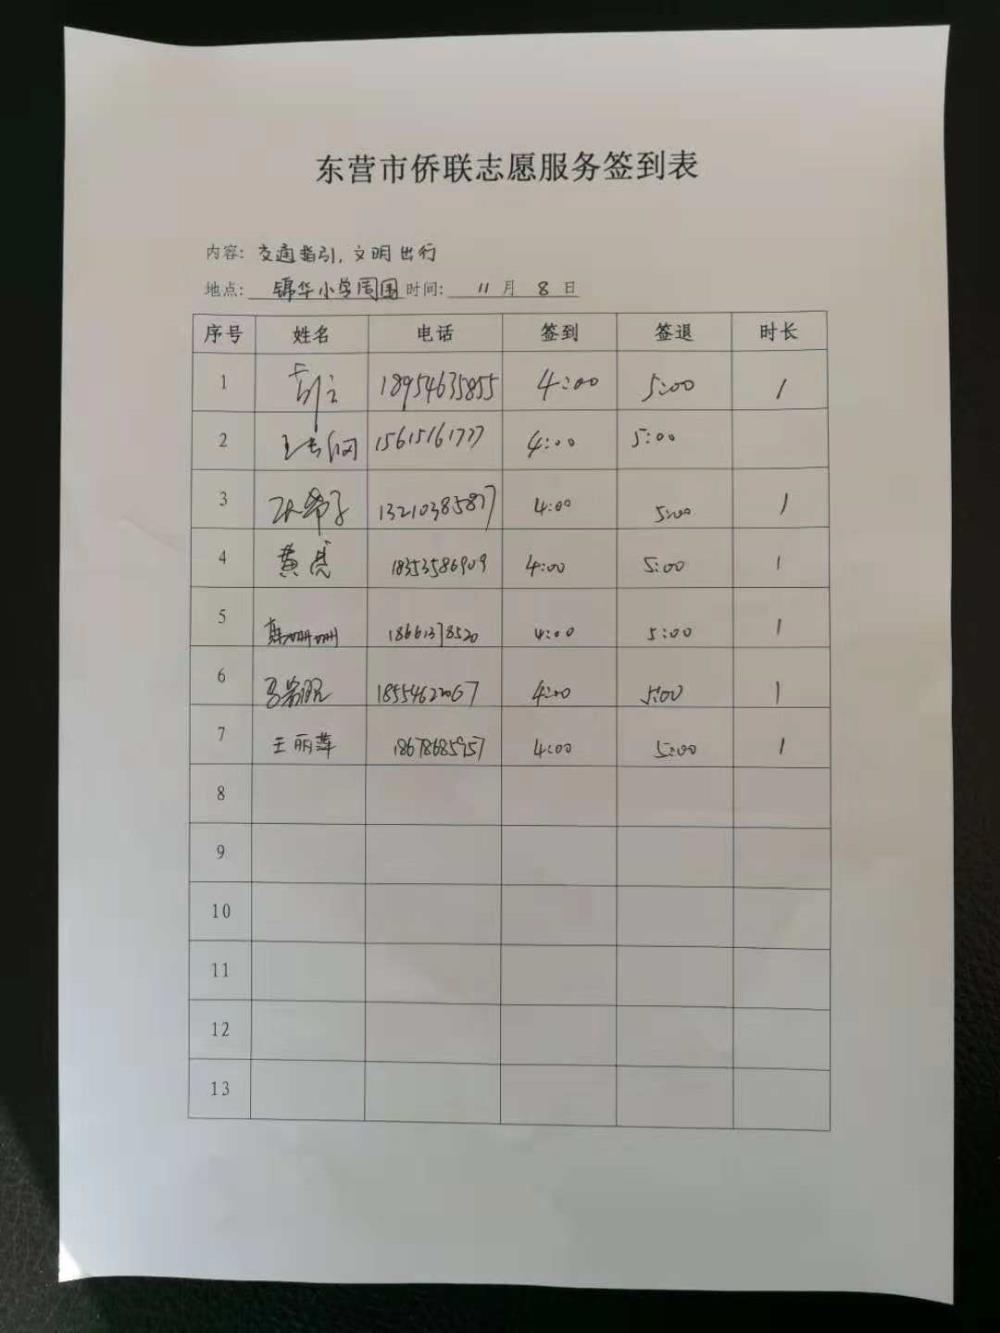 东营市侨联志愿服务签到表
内容: 交通指引, 文明出行
地点: 锦华小学周围 时间: 11月8日
序号 姓名 电话 签到 签退 时长
1 18954635855 4:00 5:00 1
2 15615161777 4:00 5:00
3 13210385877 4:00 5:00 1
4 黄亮 18353586909 4:00 5:00 1
5 韩珊珊 18661378520 4:00 5:00 1
6 18554622067 4:00 5:00 1
7 王丽萍 18678685957 4:00 5:00 1
8
9
10
11
12
13